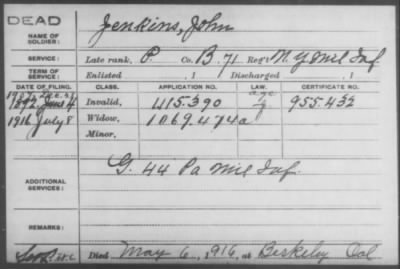 DEAD
NAME OF SOLDIER: Jenkins, John
SERVICE: Late rank, P. Co. B. 71 Reg't N.Y. Mil Inf
TERM OF SERVICE: Enlisted , 1 Discharged , 1
DATE OF FILING. CLASS. APPLICATION NO. LAW. CERTIFICATE NO.
age
1892 June 4 Invalid, 415.390 955.432
1916 July 8 Widow, 1069.474a
Minor,
ADDITIONAL SERVICES: G. 44 Pa Mil Inf.
REMARKS:
Died May 6, 1916, at Berkeley Cal